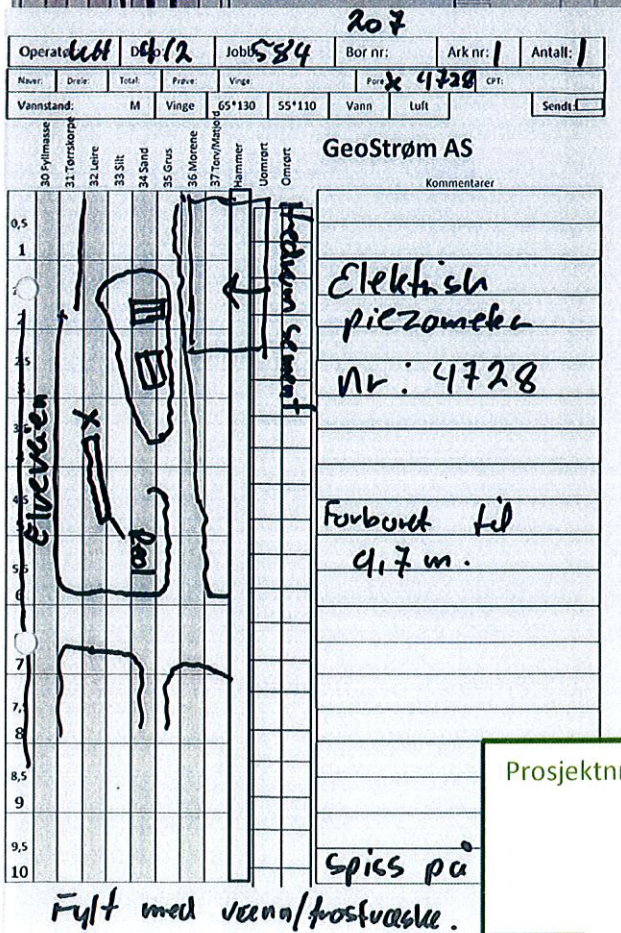 207
Operatør: Dato: 4/2 Jobb: 584 Bor nr: Ark nr: 1 Antall: 1
Naver: Dreie: Total: Prøve: Vinge: Pore X 4728 CPT:
Vannstand: M Vinge 65*130 55*110 Vann Luft Sendt:
30 Fyllmasse
31 Tørrskorpe
32 Leire
33 Silt
34 Sand
35 Grus
36 Morene
37 Torv/Matjord
Hammer
Uomrørt
Omrørt
GeoStrøm AS
Kommentarer
0,5
1
2
2,5
3
3,5
4
4,5
5
5,5
6
7
7,5
8
8,5
9
9,5
10
Elveveien
X
Hredvin sement
Elektrisk
piezometer
nr: 4728
Forboret til
4,7 m.
Spiss på
Fylt med vann/frostvæske.
Prosjektnr